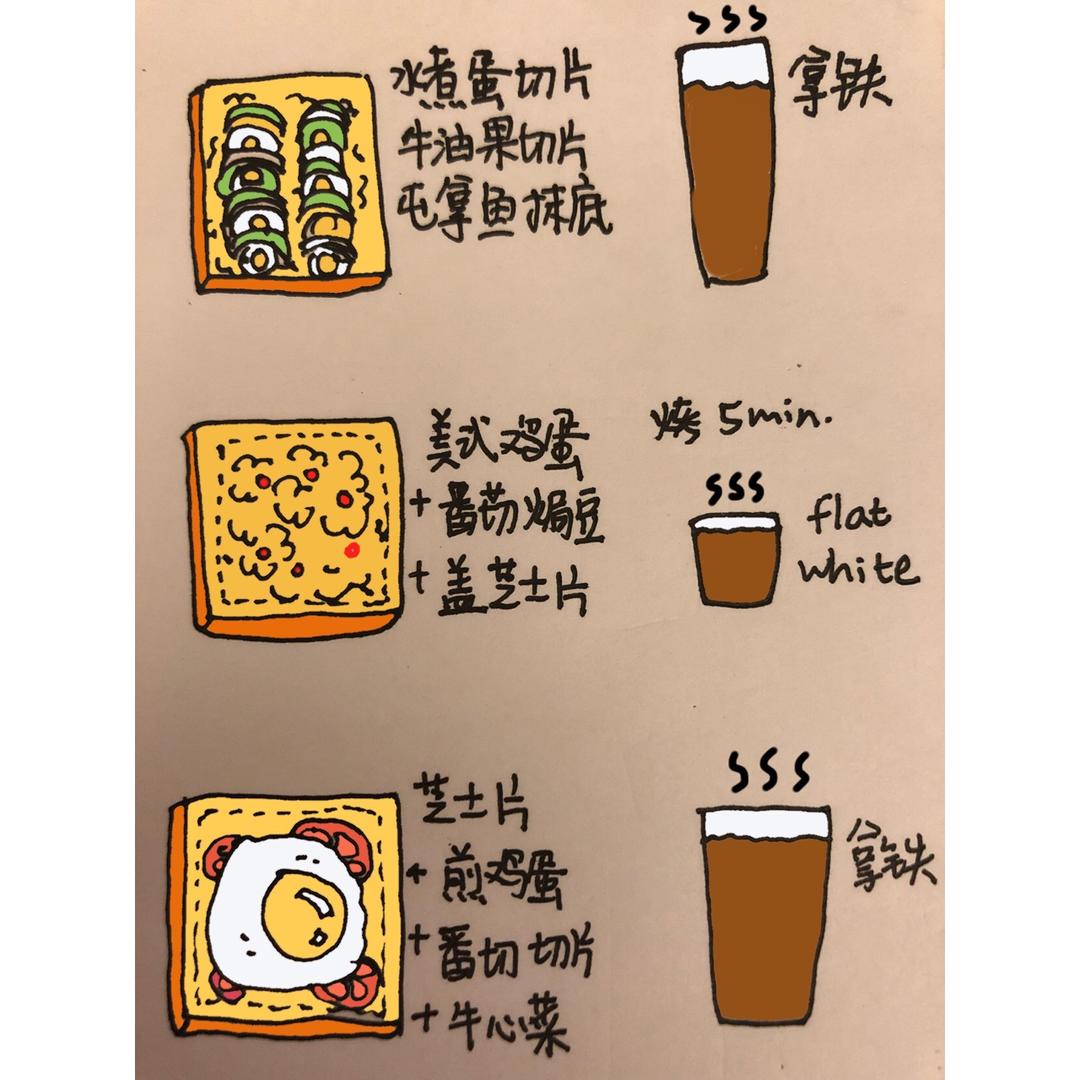 水煮蛋切片
牛油果切片
屯拿鱼抹底
拿铁
美式鸡蛋
+ 番茄焗豆
+ 盖芝士片
烤 5min.
flat
white
芝士片
+ 煎鸡蛋
+ 番切 切片
+ 牛心菜
拿铁